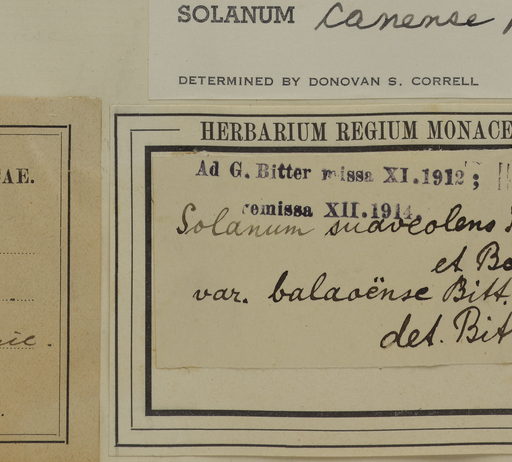 SOLANUM canense
DETERMINED BY DONOVAN S. CORRELL
CAE.
HERBARIUM REGIUM MONACE
Ad G. Bitter missa XI.1912;
remissa XII.1914.
Solanum suaveolens
et Bo
var. balaoënse Bitt.
det. Bit